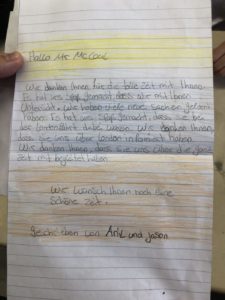 Hallo Mr McCaul
Wir danken Ihnen für die tolle zeit mit Ihnen.
Es hat uns Spaß gemacht, dass wir mit Ihnen
Unterricht. Wir haben viele neue sachen gelernt
haben. Es hat uns Spaß gemacht, dass sie bei
das dabei waren. Wir danken Ihnen,
dass sie uns über London informiert haben.
Wir danken Ihnen, dass sie uns über die ganze
zeit mit begleitet haben
Wir wünsch Ihnen noch eine
Schöne zeit.
Geschrieben von Anıl und Jason